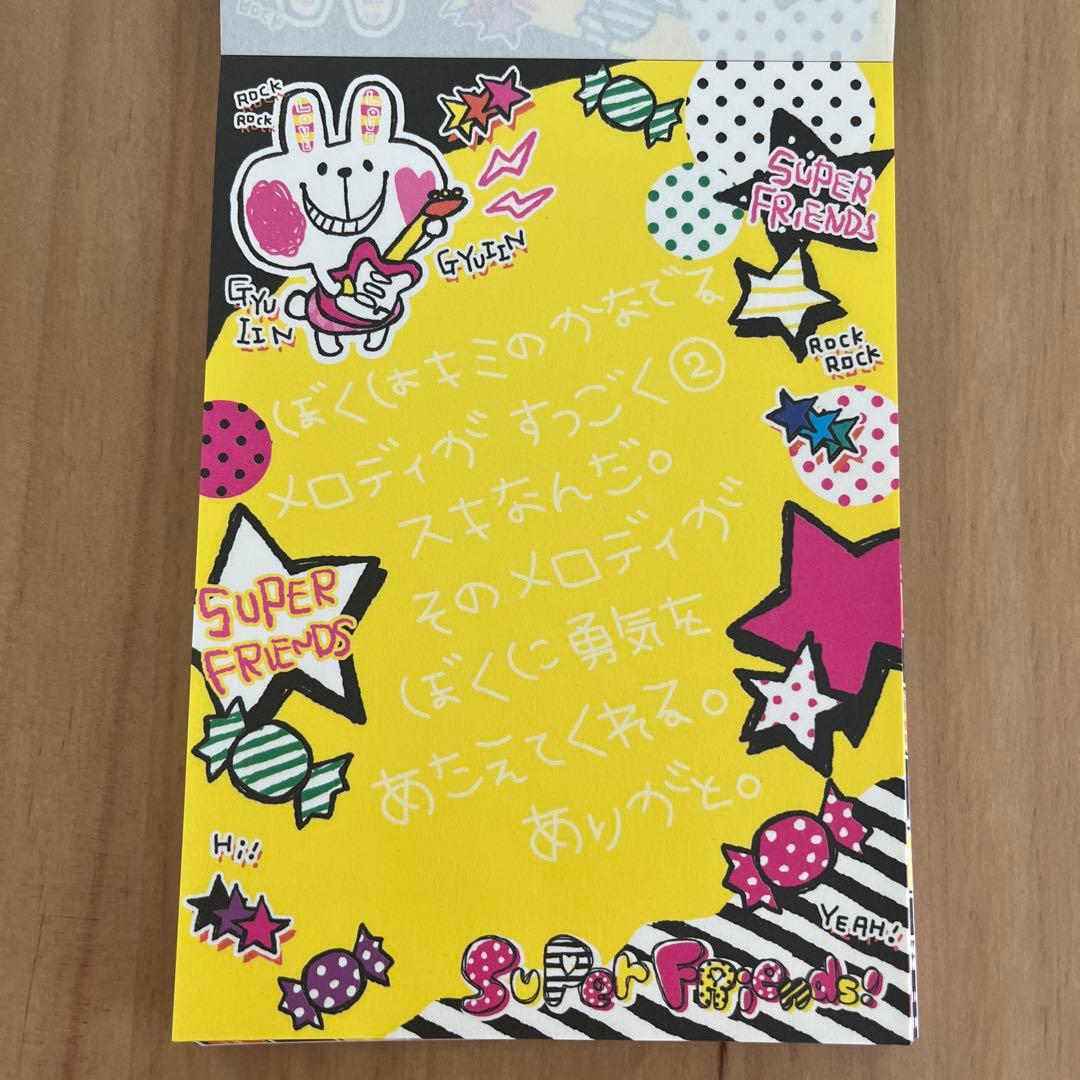 ROCK
ROCK
LOVE
LOVE
SUPER
FRIENDS
GYUIIN
GYU
IIN
ROCK
ROCK
ぼくはキミのかなでる
メロディがすっごく②
スキなんだ。
そのメロディが
ぼくに勇気を
あたえてくれる。
ありがと。
SUPER
FRIENDS
Hi!
YEAH!
SuPer FRiends!